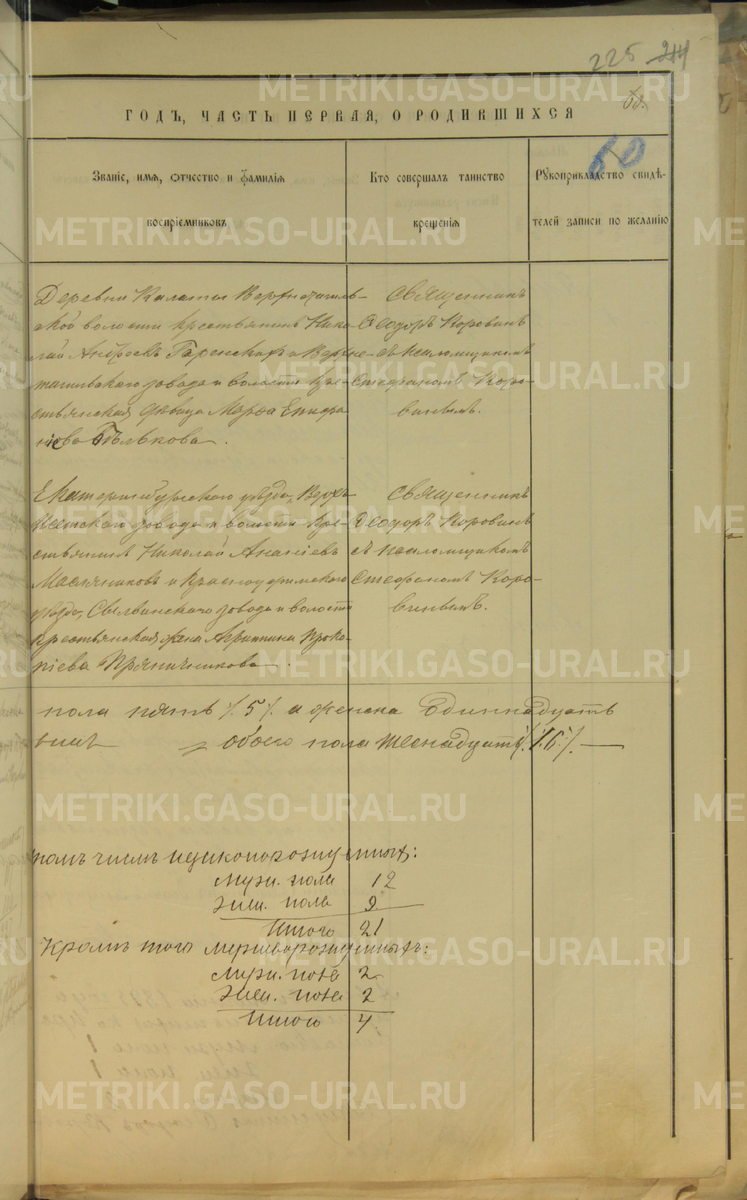 225 244
ГОДЪ, ЧАСТЬ ПЕРВАЯ, О РОДИВШИХСЯ
60
Званіе, имя, отчество и фамилія воспріемниковъ
Кто совершалъ таинство крещенія
Рукоприкладство свидѣтелей записи по желанію
Деревни Калаты Верхнетагиль-
ской волости крестьянинъ Нико-
лай Андреевъ и Верхне-
тагильскаго завода и волости кре-
стьянская дѣвица Марѳа Епифа
ніева Бѣлькова.
Священникъ
Ѳеодоръ Коровинъ
съ псаломщикомъ
Стефаномъ Коро-
винымъ.
Екатеринбургскаго уѣзда, Верхъ-
Исетскаго завода и волости кре-
стьянинъ Николай Ананіевъ
Масленниковъ и Красноуфимскаго
уѣзда, завода и волости
крестьянская жена Агриппина Проко-
піева Пряничникова.
Священникъ
Ѳеодоръ Коровинъ
съ псаломщикомъ
Стефаномъ Коро-
винымъ.
пола пять /.5/. а женска одиннадцать
обоего пола шеснадцать /.16./. —
томъ числѣ незаконорожденныхъ:
Муж. пола 12
Жен. пола 9
Итого 21
Кромѣ того мертворожденныхъ:
Муж. пола 2
Жен. пола 2
Итого 4
METRIKI.GASO-URAL.RU